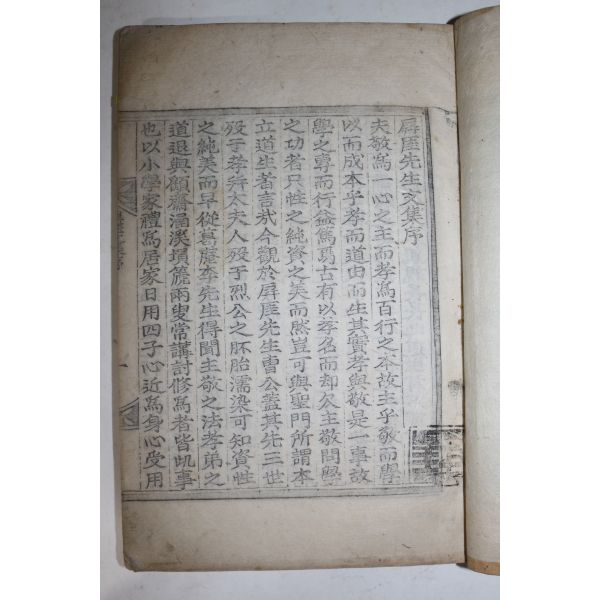 屏厓先生文集序
夫敬爲一心之主而孝爲百行之本故主乎敬而學
以而成本乎孝而道由而生其實孝與敬是一事故
學之專而行益篤焉古有以孝名而却欠主敬問學
之功者只性之純資之美而然豈可與聖門所謂本
立道生者言哉今觀於屏厓先生曺公蓋其先三世
歿于孝幷太夫人歿于烈公之胚胎濡染可知資性
之純美而早從葛庵李先生得聞主敬之法孝弟之
道退與顧齋溪塤篪兩叟常講討修爲者皆此事
也以小學家禮爲居家日用四子心近爲身心受用